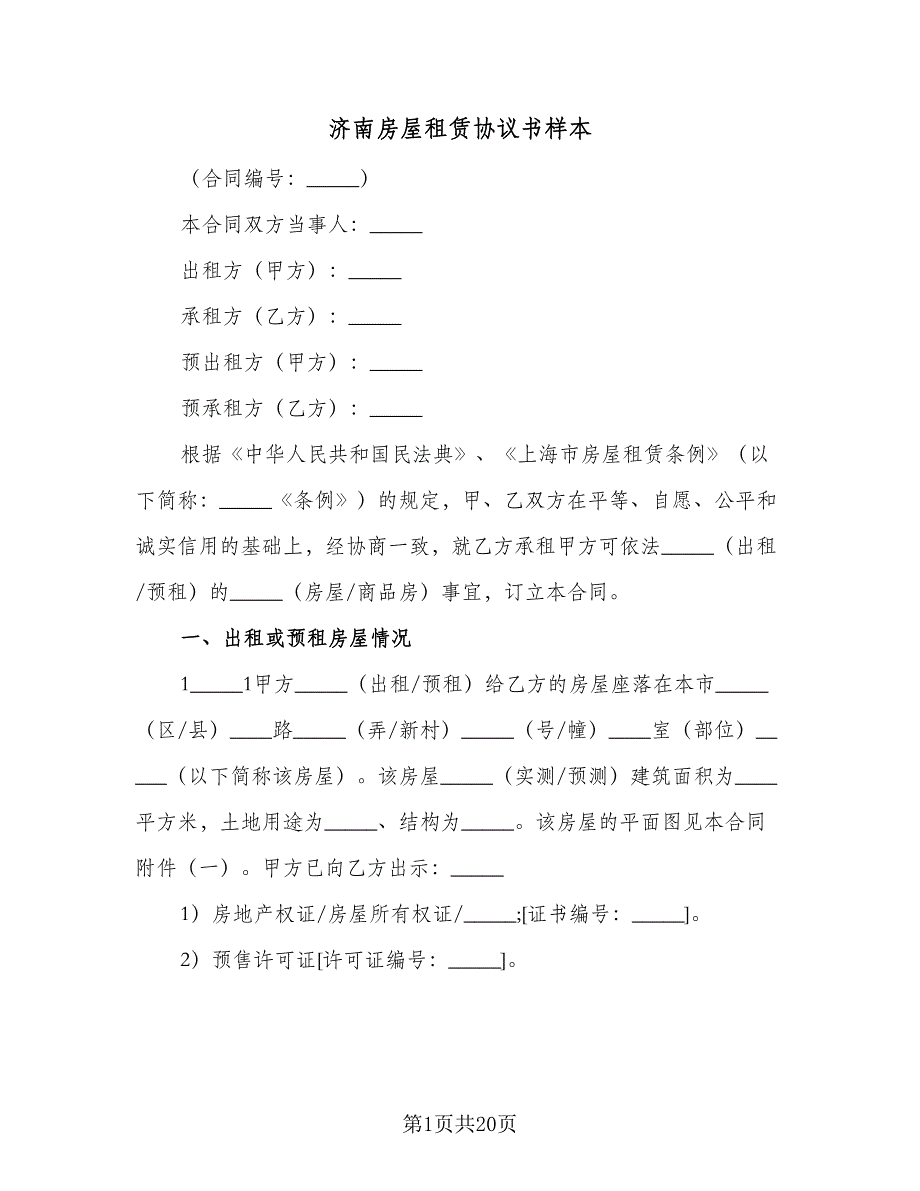 济南房屋租赁协议书样本
（合同编号：_____）
本合同双方当事人：_____
出租方（甲方）：_____
承租方（乙方）：_____
预出租方（甲方）：_____
预承租方（乙方）：_____
根据《中华人民共和国民法典》、《上海市房屋租赁条例》（以
下简称：_____《条例》）的规定，甲、乙双方在平等、自愿、公平和
诚实信用的基础上，经协商一致，就乙方承租甲方可依法_____（出租
/预租）的_____（房屋/商品房）事宜，订立本合同。
一、出租或预租房屋情况
1_____1甲方_____（出租/预租）给乙方的房屋座落在本市_____
（区/县）____路_____（弄/新村）_____（号/幢）____室（部位）__
___（以下简称该房屋）。该房屋_____（实测/预测）建筑面积为____
平方米，土地用途为_____、结构为_____。该房屋的平面图见本合同
附件（一）。甲方已向乙方出示：_____
1）房地产权证/房屋所有权证/_____;[证书编号：_____]。
2）预售许可证[许可证编号：_____]。
第1页共20页